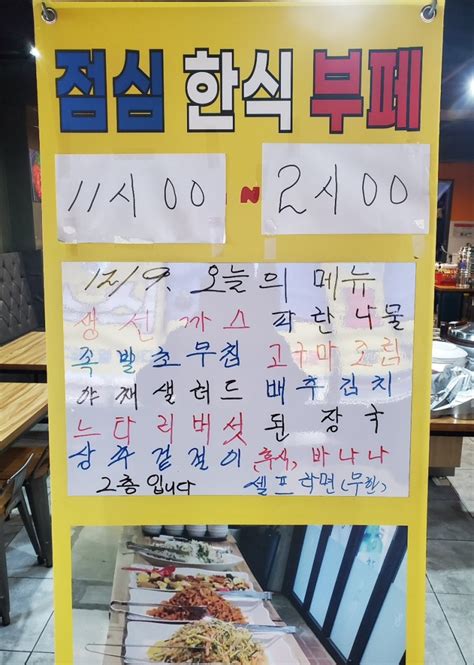 점심 한식 부페
11시 00 ~ 2시 00
12/9. 오늘의 메뉴
생선까스 파란나물
족발초무침 고구마조림
야채샐러드 배추김치
느타리버섯 된장국
상추겉절이 후식, 바나나
2층입니다 셀프라면(무한)